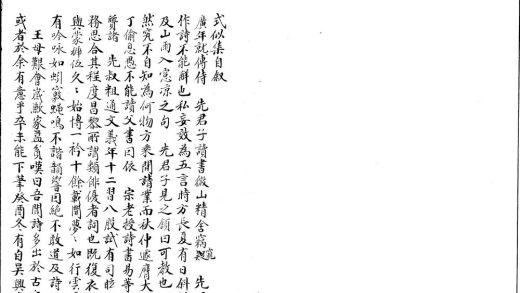 式似集自敘
廣年就傅侍　先君子讀書微山精舍竊　先
作詩不能解也私妄效為五言時方長夏有日斜
及山雨入窻涼之句　先君子見之頷曰可教也
然究不自知為何物方秉開請業而秋仲遽膺大
丁偷息愚不能讀父書因依　宗老授詩書易等
贄諸　先叔祖通文義年十二習八股試有司眩
務思合其程度昌黎所謂類俳優者詞也既復衣
興蒙辦伍久久始博一衿十餘載間夢夢如行雲
有吟咏如蚓竅蠅鳴不諧韻響因絕不敢道及詩
王母艱會歲歉家益貧嘆曰吾聞詩多出於古
或者於余有意乎卒未能下筆癸酉冬有自吳興